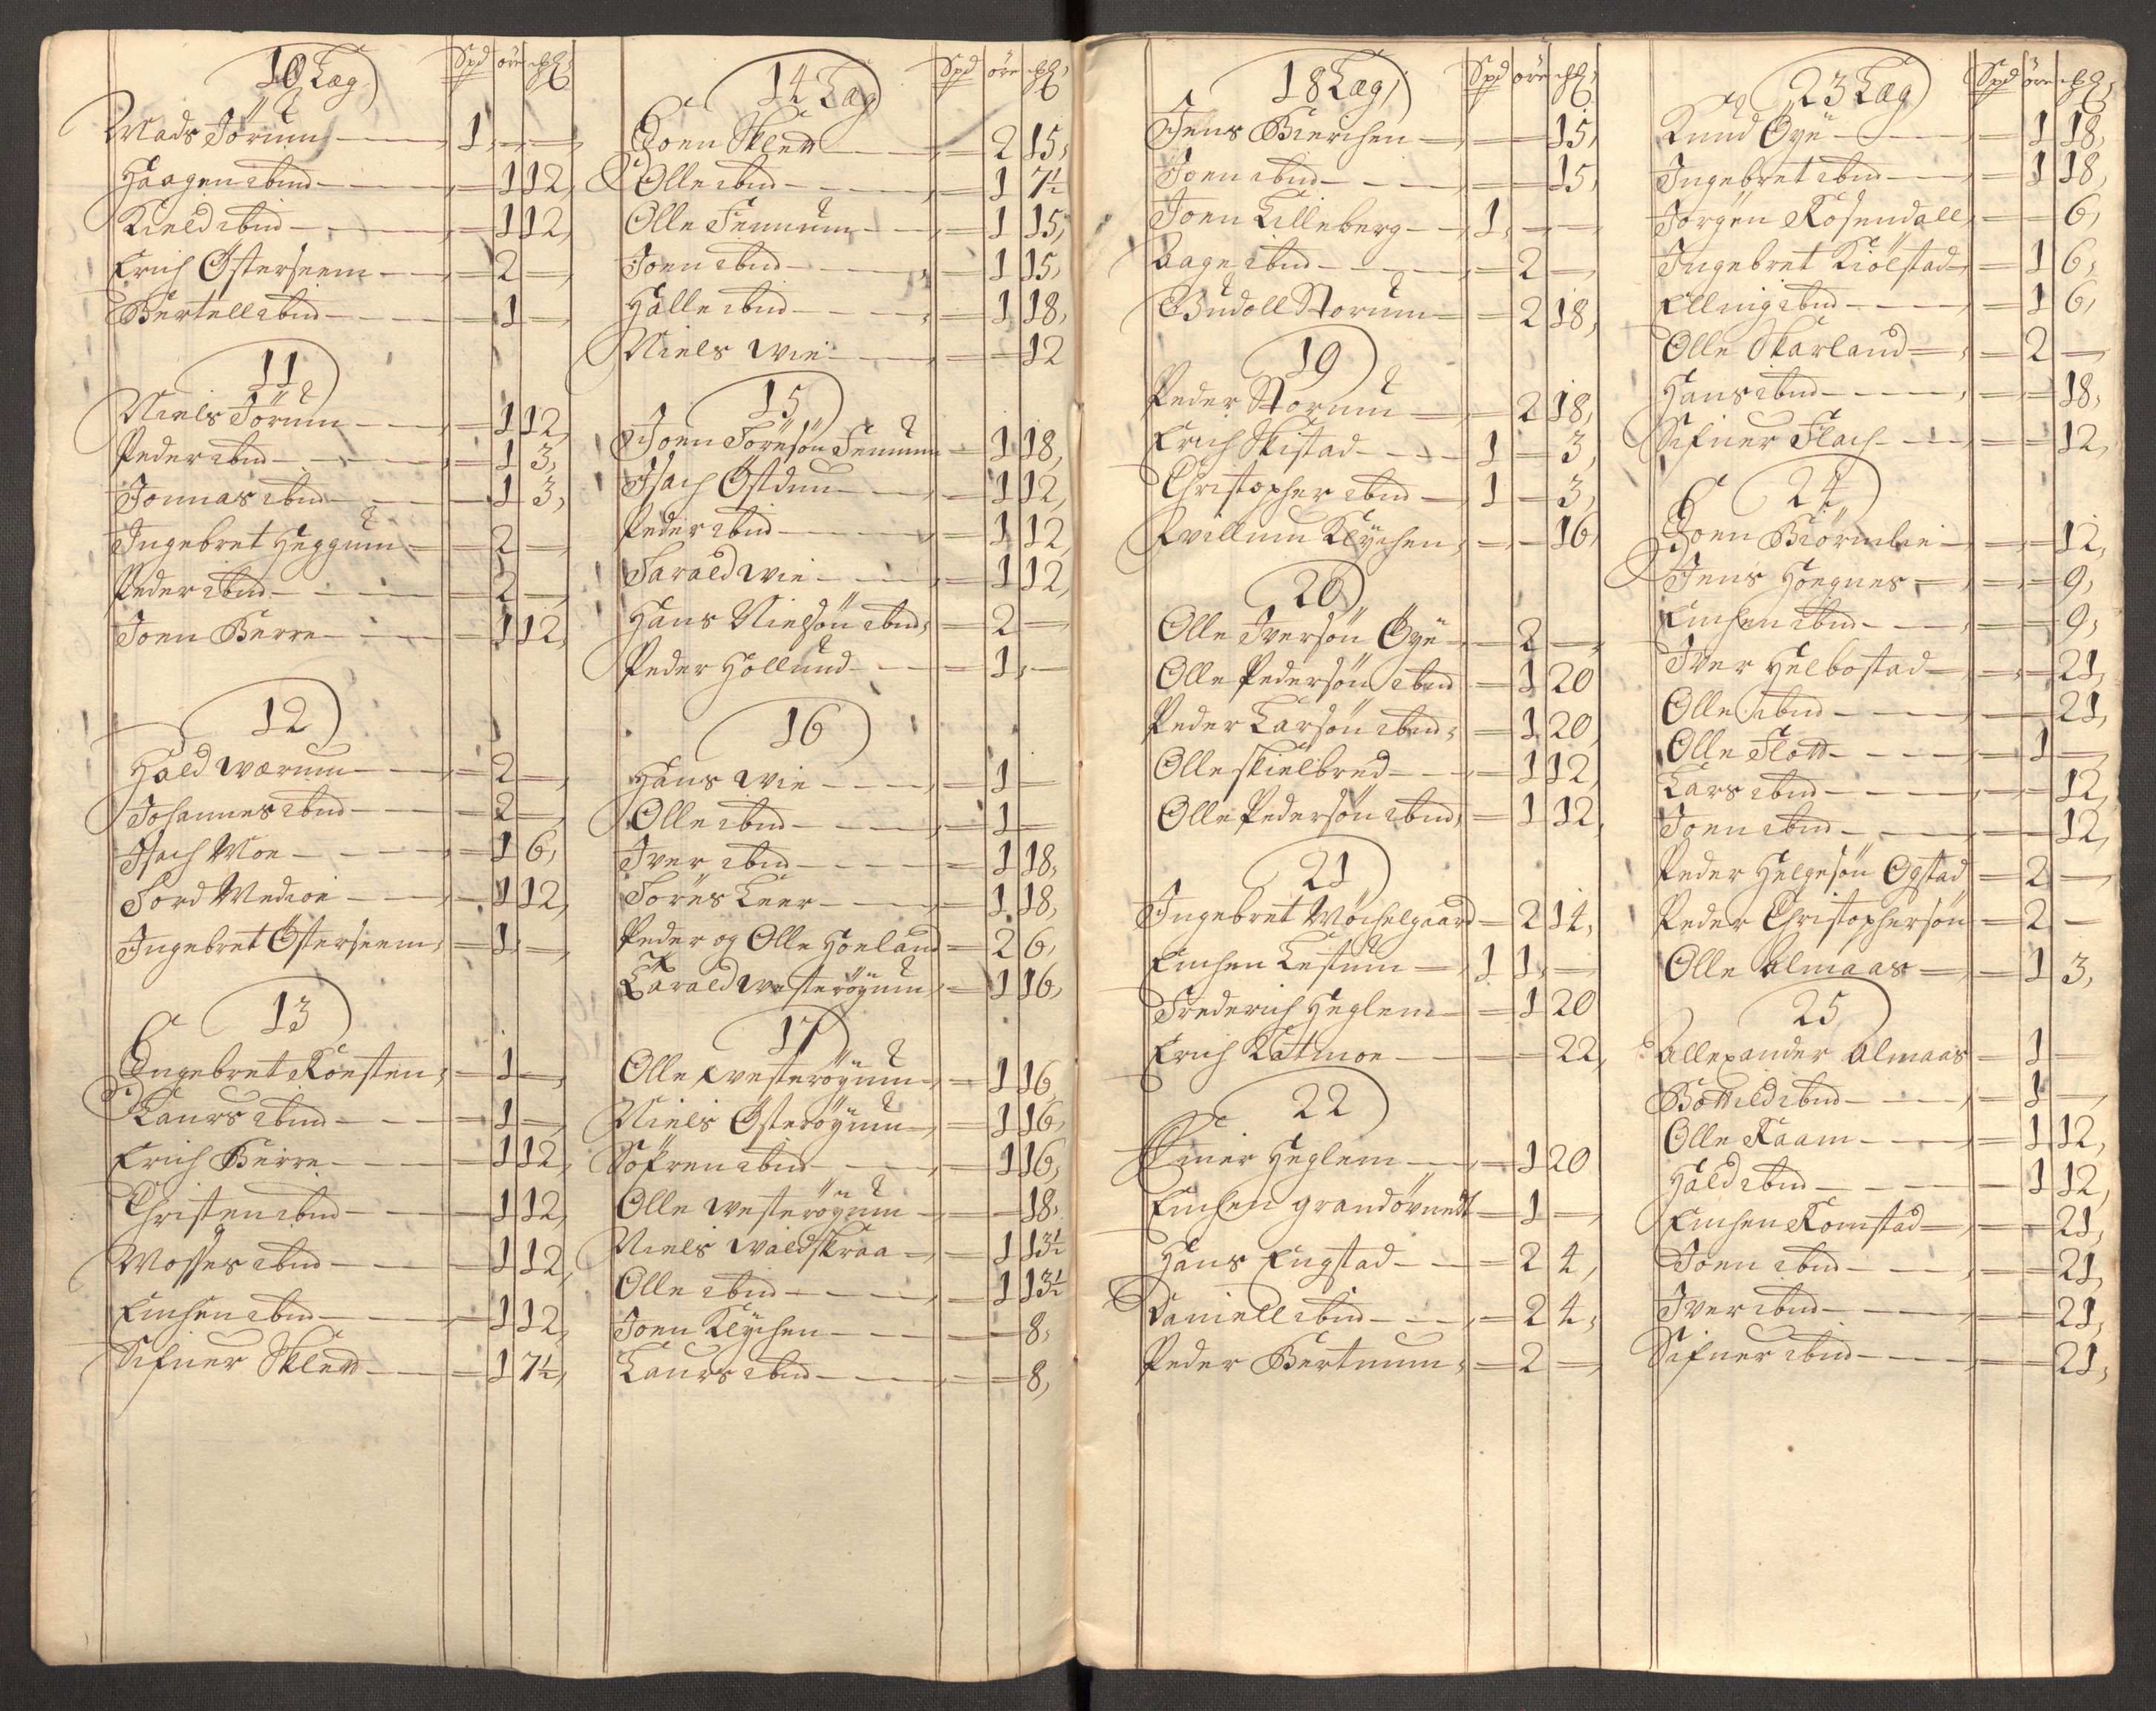 10 Læg Spd öre mkl
Mads Törum 1 — —
Haagen ibid — 1 12
Kield ibid — 1 12
Erich Österseem — 2 —
Bertell ibid — 1 —
11
Niels Törum — 1 12
Peder ibid — 1 3
Jonnas ibid — 1 3
Ingebret Heggum — 2 —
Peder ibid — 2 —
Joen Berre — 1 12
12
Hald Wærum — 2 —
Johannes ibid — 2 —
Isach Moe — 1 6
Tord Medioe — 1 12
Ingebret Österseem — 1 —
13
Ingebret Roesten — 1 —
Laurs ibid — 1 —
Erich Berre — 1 12
Christen ibid — 1 12
Mosses ibid — 1 12
Einchen ibid — 1 12
Sifuer Skley — 1 7½
14 Læg Spd öre
Joen Skley — 2 15
Olle ibid — 1 7½
Olle Semum — 1 15
Joen ibid — 1 15
Halle ibid — 1 18
Niels Wie — — 12
15
Joen Töresön Semum — 1 18
Isach Östduu — 1 12
Peder ibid — 1 12
Tarald Wie — 1 12
Hans Nielsön ibid — 2 —
Peder Hollund — 1 —
16
Hans Wie — 1 —
Olle ibid — 1 —
Iver ibid — 1 18
Töres Leer — 1 18
Peder og Olle Hoeland — 2 6
Harald Westeröyum — 1 16
17
Olle Westeröyum — 1 16
Niels Österöyum — 1 16
Söfren ibid — 1 16
Olle Westeröyum — — 18
Niels Waldskraa — 1 13½
Olle ibid — 1 13½
Joen Klychen — — 8
Laurs ibid — — 8
18 Læg Spd öre
Jens Bierchen — — 15
Joen ibid — — 15
Joen Lilleberg 1 — —
Aage ibid — 2 —
Gudoll Storum — 2 18
19
Peder Storum — 2 18
Erich Skistad 1 — 3
Christopher ibid 1 — 3
Qvillum Klychen — — 16
20
Olle Iversön Öye — 2 —
Olle Pedersön ibid — 1 20
Peder Larsön ibid — 1 20
Olle skielbred — 1 12
Olle Pedersön ibid — 1 12
21
Ingebret Wöchelgaard — 2 14
Einchen Lestum 1 1 —
Frederich Heglem — 1 20
Erich Katmoe — — 22
22
Einer Heglem — 1 20
Einchen grandövnedt — 1 —
Hans Engstad — 2 4
Daniell ibid — 2 4
Peder Bertnum — 2 —
23 Læg Spd öre
Knud Öye — 1 18
Ingebret ibid — 1 18
Jörgen Rosendall — — 6
Ingebret Kiölstad — 1 6
Elling ibid — 1 6
Olle Skarland — 2 —
Hans ibid — — 18
Sifuer Flach — — 12
24
Joen Biörnlie — — 12
Jens Hoegnes — — 9
Einchen ibid — — 9
Iver Helbostad — — 21
Olle ibid — — 21
Olle Flott — 1 —
Lars ibid — — 12
Joen ibid — — 12
Peder Helgesön Ogstad — 2 —
Peder Christophersön — 2 —
Olle Almaas — 1 3
25
Allexander Almaas — 1 —
Bottild ibid — 1 —
Olle Kaam — 1 12
Hald ibid — 1 12
Einchen Romstad — — 21
Joen ibid — — 21
Iver ibid — — 21
Sifuer ibid — — 21